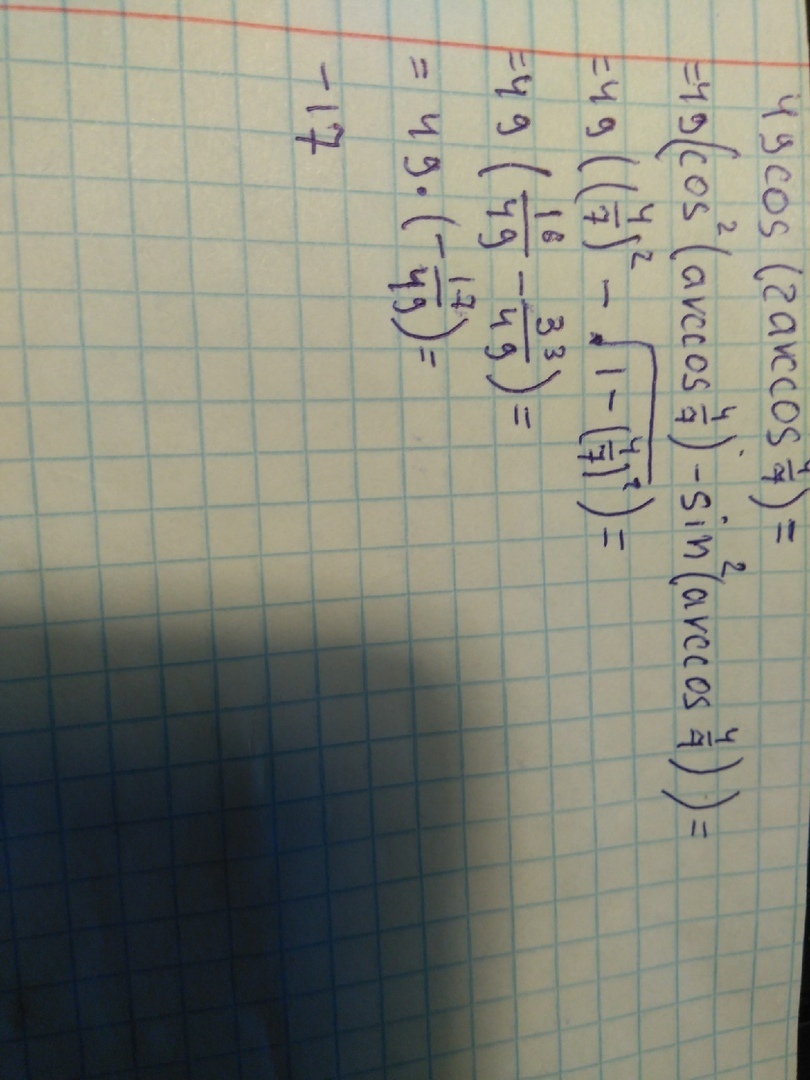 49cos(2arccos 4/7) =
=49(cos²(arccos 4/7) - sin²(arccos 4/7)) =
=49((4/7)² - √(1-(4/7)²)) =
=49(16/49 - 33/49) =
= 49·(-17/49) =
-17